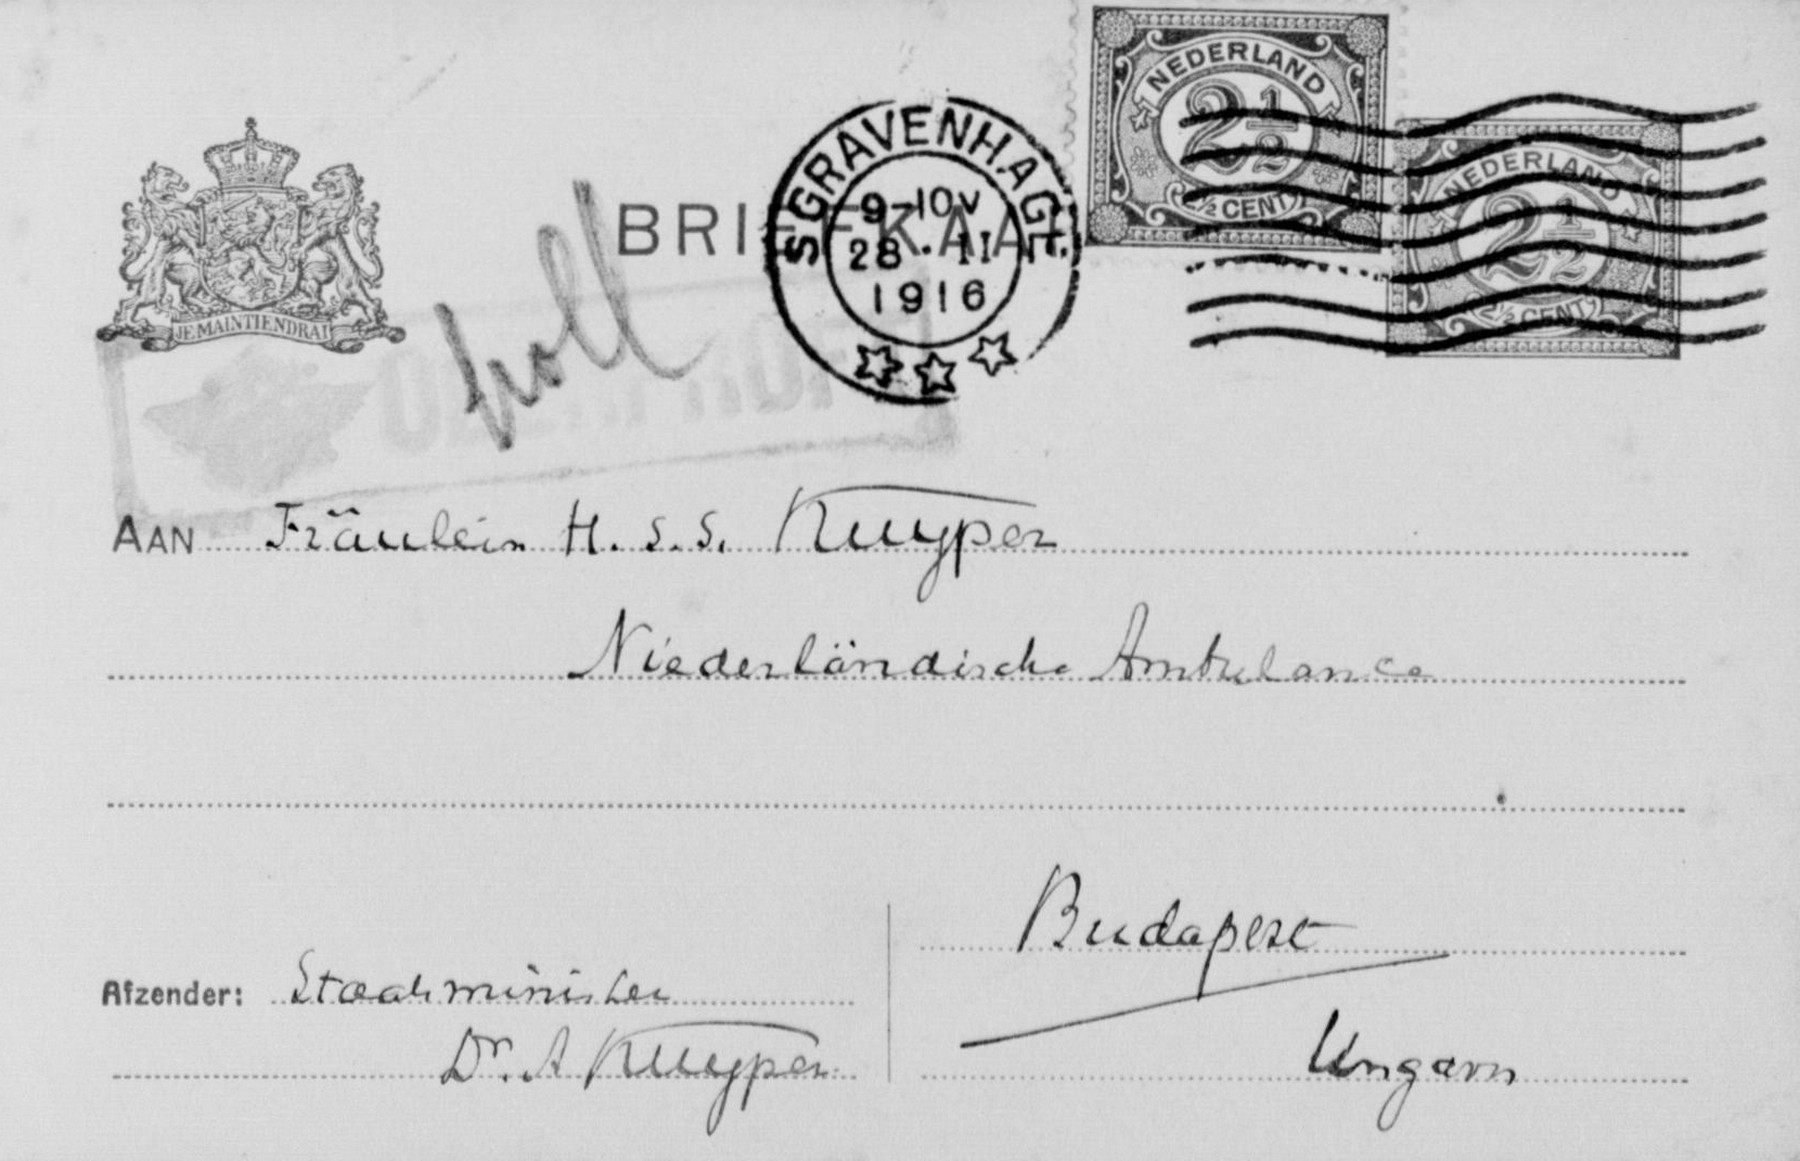 NEDERLAND
2 1/2
2 1/2 CENT
NEDERLAND
2 1/2
2 1/2 CENT
'SGRAVENHAGE
9-10V
28 · II
1916
BRIEFKAART
JE MAINTIENDRAI
holl
AAN Fräulein H. S. S. Kuyper
Niederländische Ambulance
Budapest
Afzender: Staatsminister
Dr. A Kuyper
Ungarn